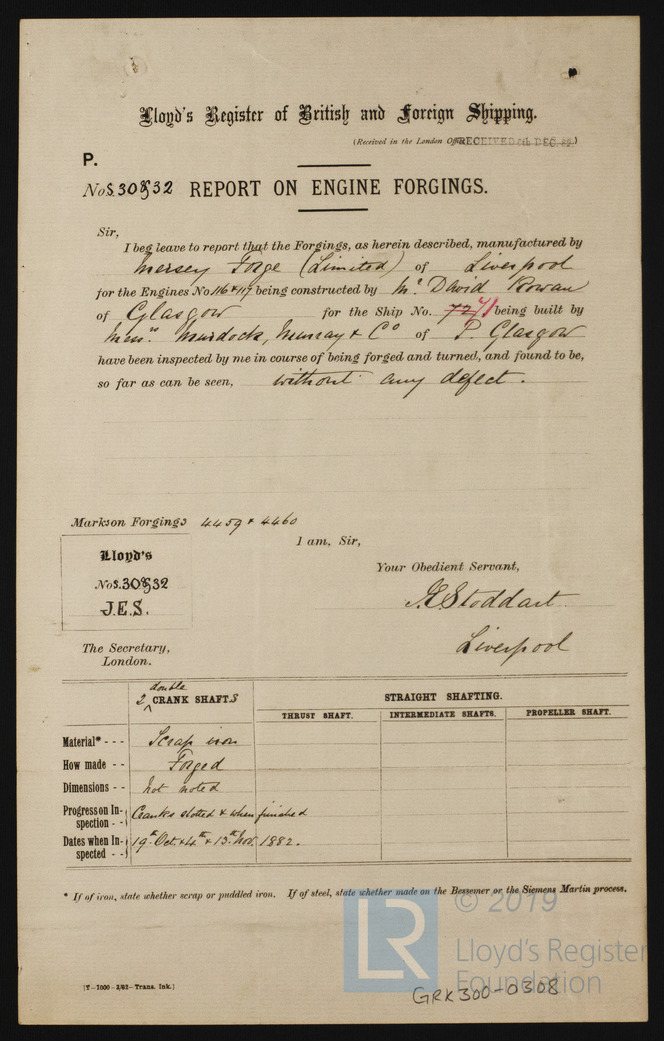 Lloyd's Register of British and Foreign Shipping.
(Received in the London Office RECEIVED DEC. 82)
P.
Nos. 30 & 32 REPORT ON ENGINE FORGINGS.
Sir,
I beg leave to report that the Forgings, as herein described, manufactured by
Mersey Forge (Limited) of Liverpool
for the Engines No 116 & 117 being constructed by Mr. David Rowan
of Glasgow for the Ship No. 72 71 being built by
Messrs. Murdock, Murray & Co of P. Glasgow
have been inspected by me in course of being forged and turned, and found to be,
so far as can be seen, without any defect.
Marks on Forgings 4459 & 4460
I am, Sir,
Lloyd's
Nos. 30 & 32
J.E.S.
Your Obedient Servant,
J.E. Stoddart
Liverpool
The Secretary,
London.
2 double CRANK SHAFTS
STRAIGHT SHAFTING.
THRUST SHAFT. INTERMEDIATE SHAFTS. PROPELLER SHAFT.
Material* - - - Scrap iron
How made - - Forged
Dimensions - - not noted
Progress on In-
spection - - Cranks slotted & when finished
Dates when In-
spected - - 19th Oct. & 4th & 13th Nov. 1882.
* If of iron, state whether scrap or puddled iron. If of steel, state whether made on the Bessemer or the Siemens Martin process.
© 2019
LR
Lloyd's Register
Foundation
[T—1000—2/82—Trans. Ink.]
GRK300-0308